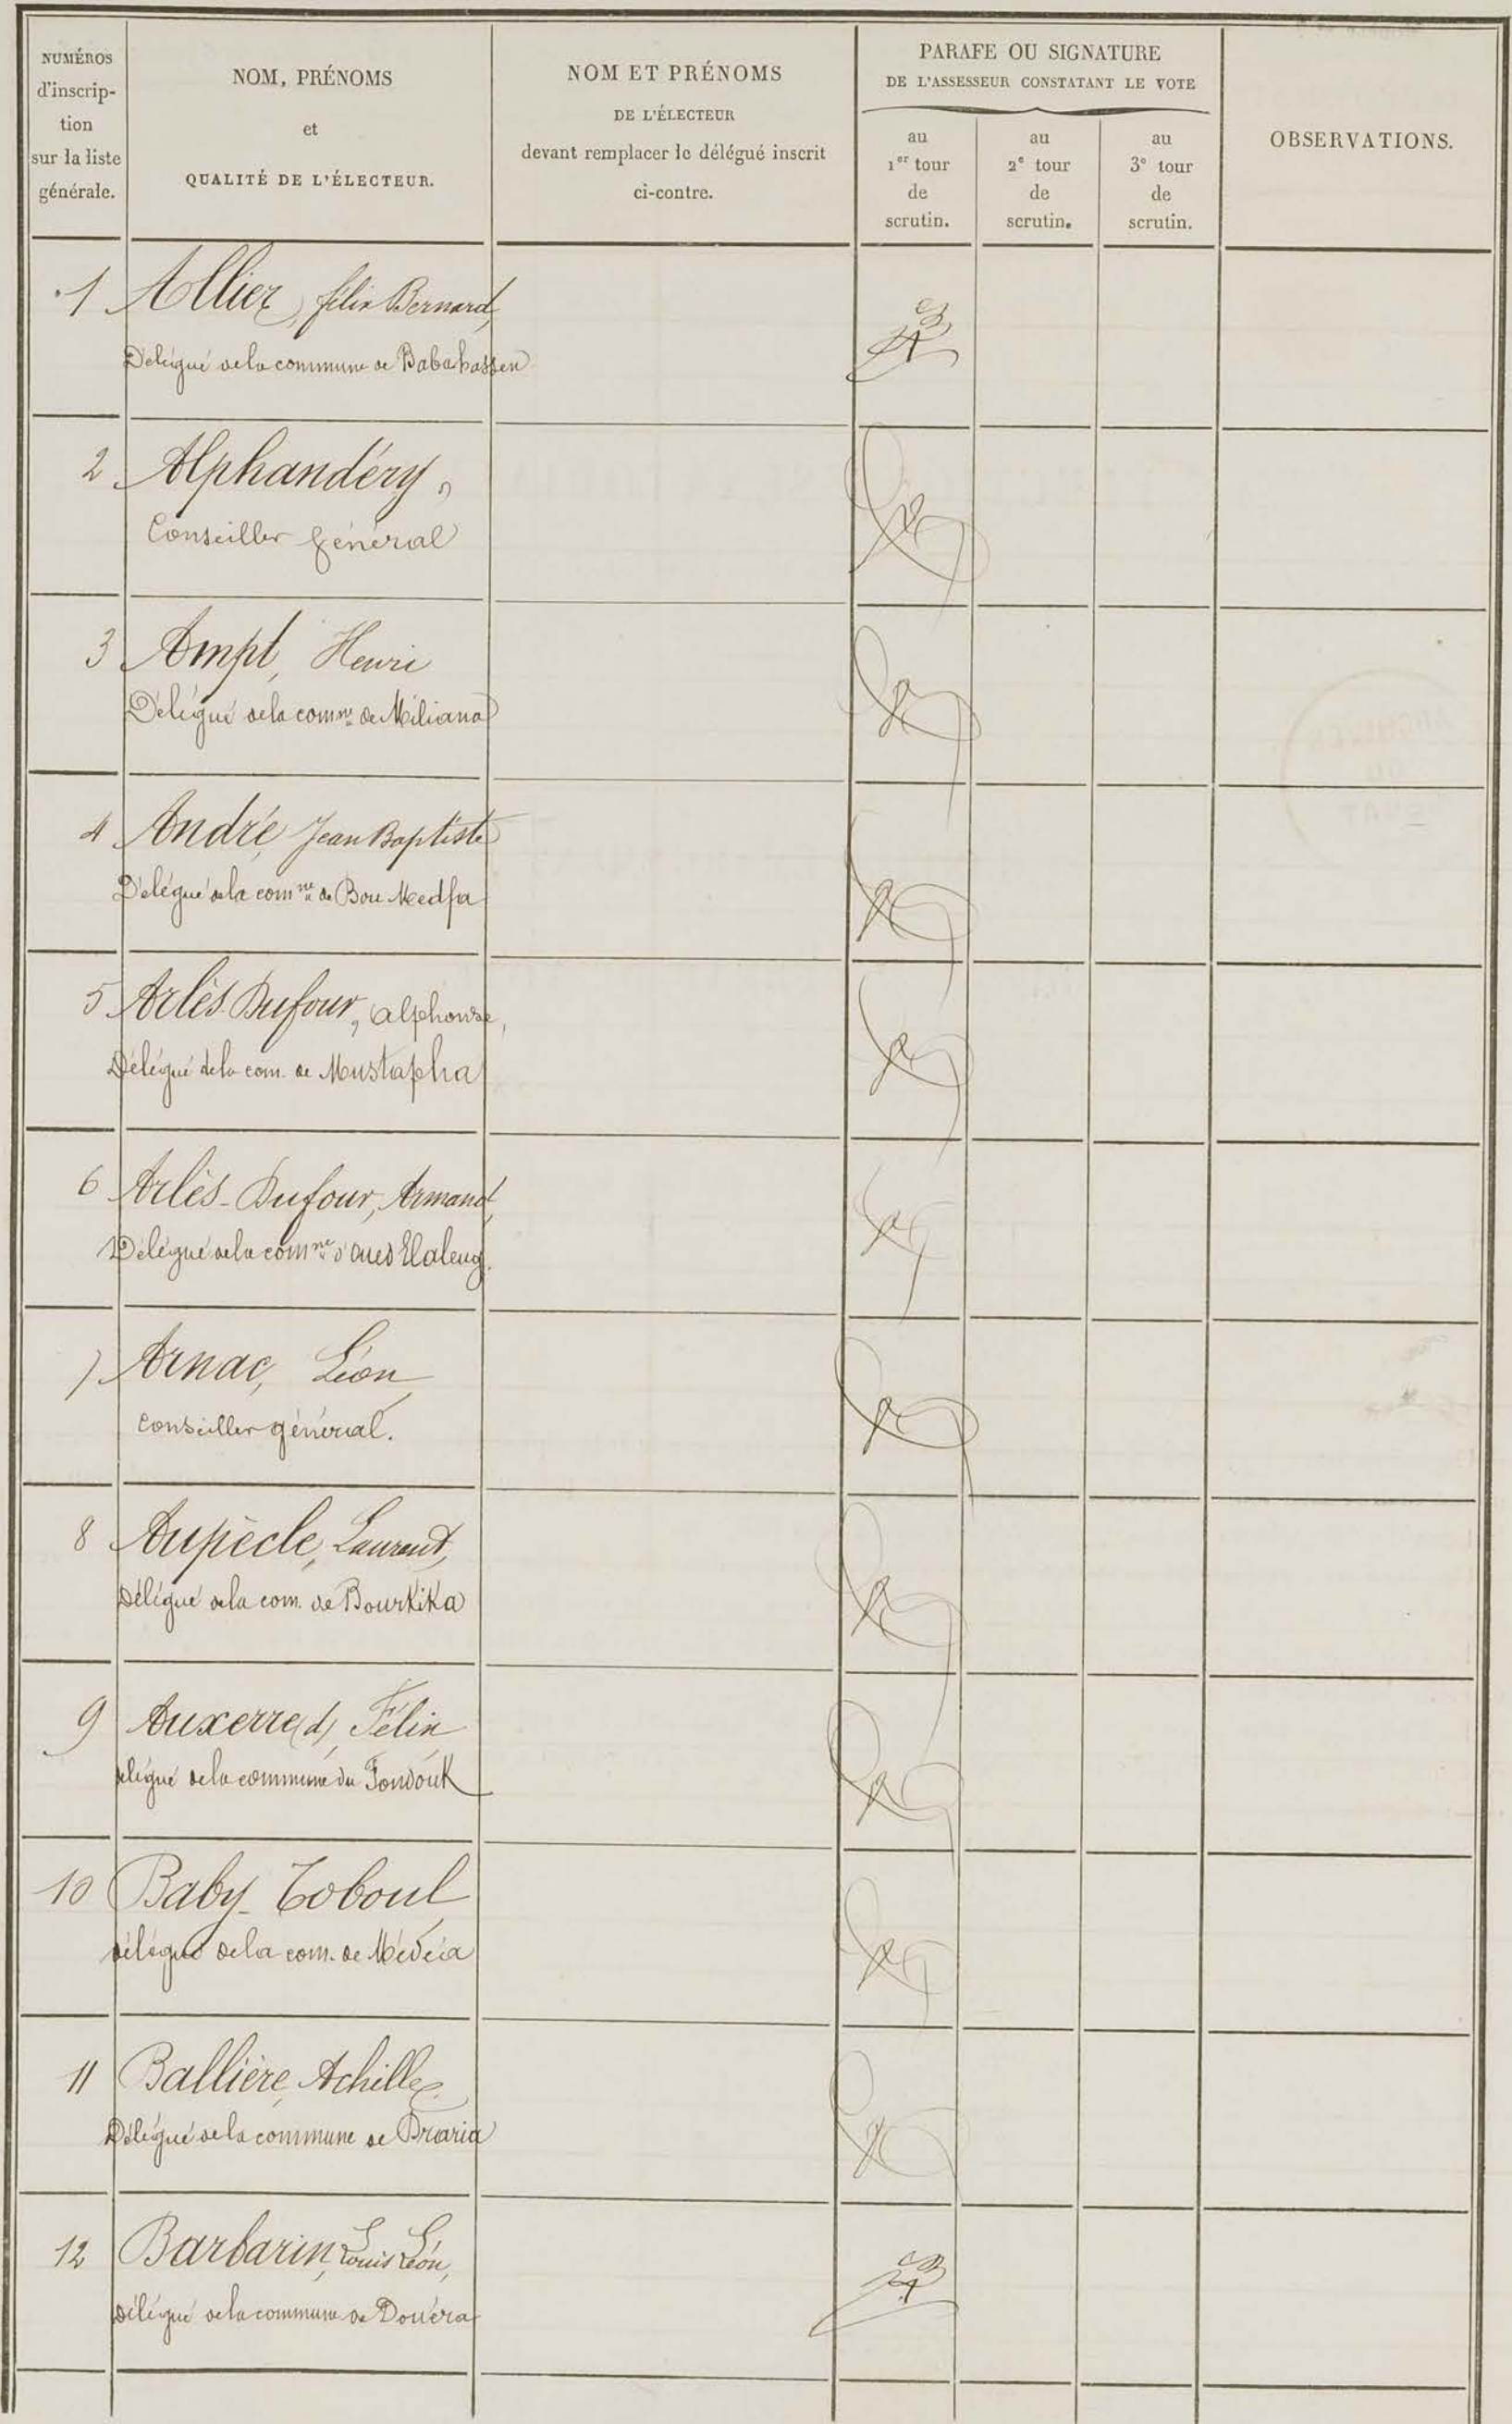 NUMÉROS
d'inscrip-
tion
sur la liste
générale.
NOM, PRÉNOMS
et
QUALITÉ DE L'ÉLECTEUR.
NOM ET PRÉNOMS
DE L'ÉLECTEUR
devant remplacer le délégué inscrit
ci-contre.
PARAFE OU SIGNATURE
DE L'ASSESSEUR CONSTATANT LE VOTE
au
1er tour
de
scrutin.
au
2e tour
de
scrutin.
au
3e tour
de
scrutin.
OBSERVATIONS.
1 Allier, félix Bernard,
Délégué de la commune de Babahassen
2 Alphandéry,
Conseiller général
3 Ampt, Henri
Délégué de la comne de Miliana
4 André, Jean Baptiste
Délégué de la comne de Bou Medfa
5 Arlès-Dufour, Alphonse,
Délégué de la com. de Mustapha
6 Arlès-Dufour, Armand,
Délégué de la comne d'Oued Elaleug.
7 Arnac, Léon
Conseiller général.
8 Aupècle, Laurent,
Délégué de la com. de Bourkika
9 Auxerre(d), Félix
délégué de la commune du Fondouk
10 Baby-Toboul
délégué de la com. de Médéia
11 Ballière, Achille
Délégué de la commune de Draria
12 Barbarin, Louis Léon,
délégué de la commune de Douéra